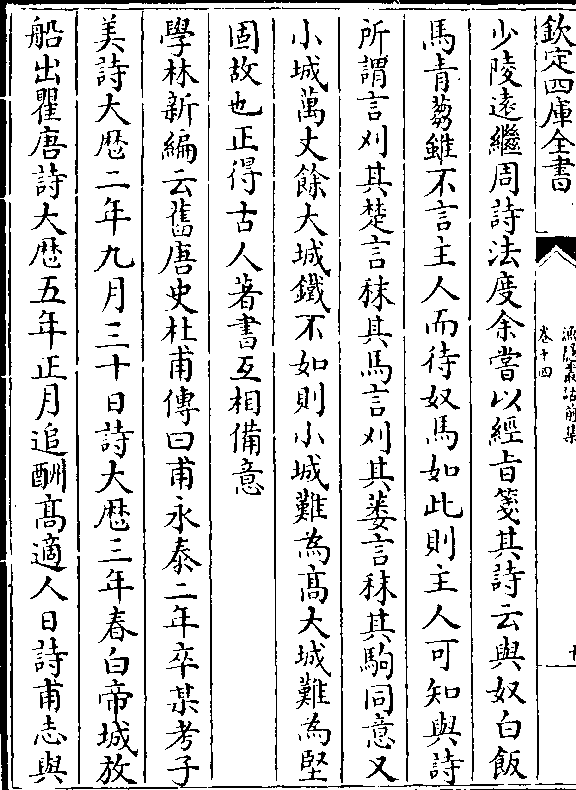 欽定四庫全書
漁隱叢話前集
卷十四
少陵遠繼周詩法度余嘗以經旨箋其詩云與奴白飯
馬青芻雖不言主人而待奴馬如此則主人可知與詩
所謂言刈其楚言秣其馬言刈其蔞言秣其駒同意又
小城萬丈餘大城鐵不如則小城難為髙大城難為堅
固故也正得古人著書互相備意
學林新編云舊唐史杜甫傳曰甫永泰二年卒某考子
美詩大厯二年九月三十日詩大厯三年春白帝城放
船出瞿唐詩大厯五年正月追酬髙適人日詩甫志與